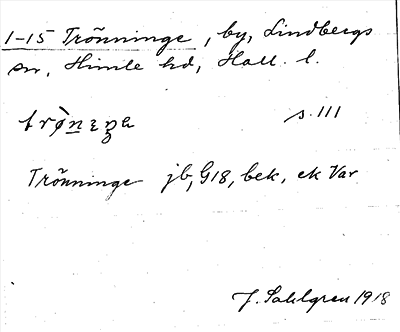 1-15 Trönninge, by, Lindbergs
sn, Himle hd, Hall. l.
s. 111
Trönninge jb, G18, bek. ek Var
J. Sahlgren 1918